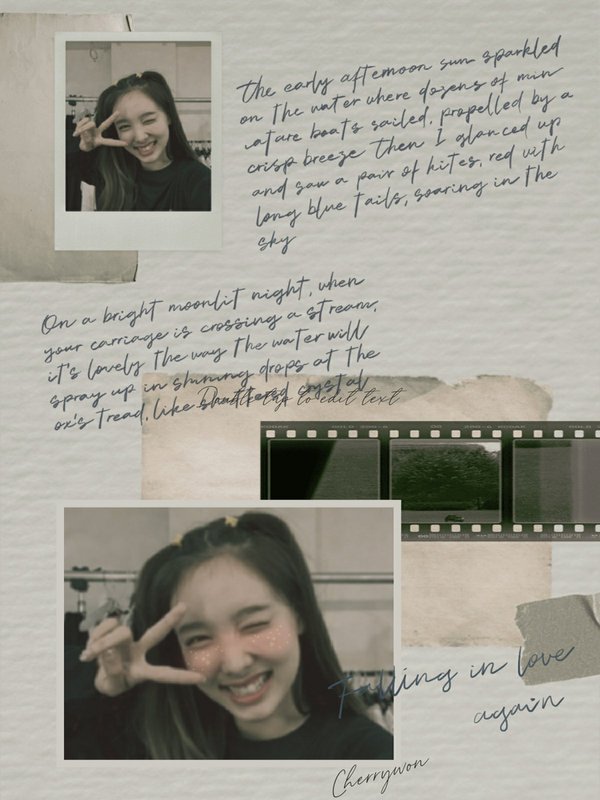 the early afternoon sun sparkled
on the water where dozens of min
iature boats sailed, propelled by a
crisp breeze Then I glanced up
and saw a pair of kites, red with
long blue tails, soaring in the
sky
On a bright moonlit night, when
your carriage is crossing a stream,
it's lovely the way the water will
spray up in shining drops at the
ox's tread, like shattered crystal
Double tap to edit text
KODAK
Falling in love
again
Cherrywon